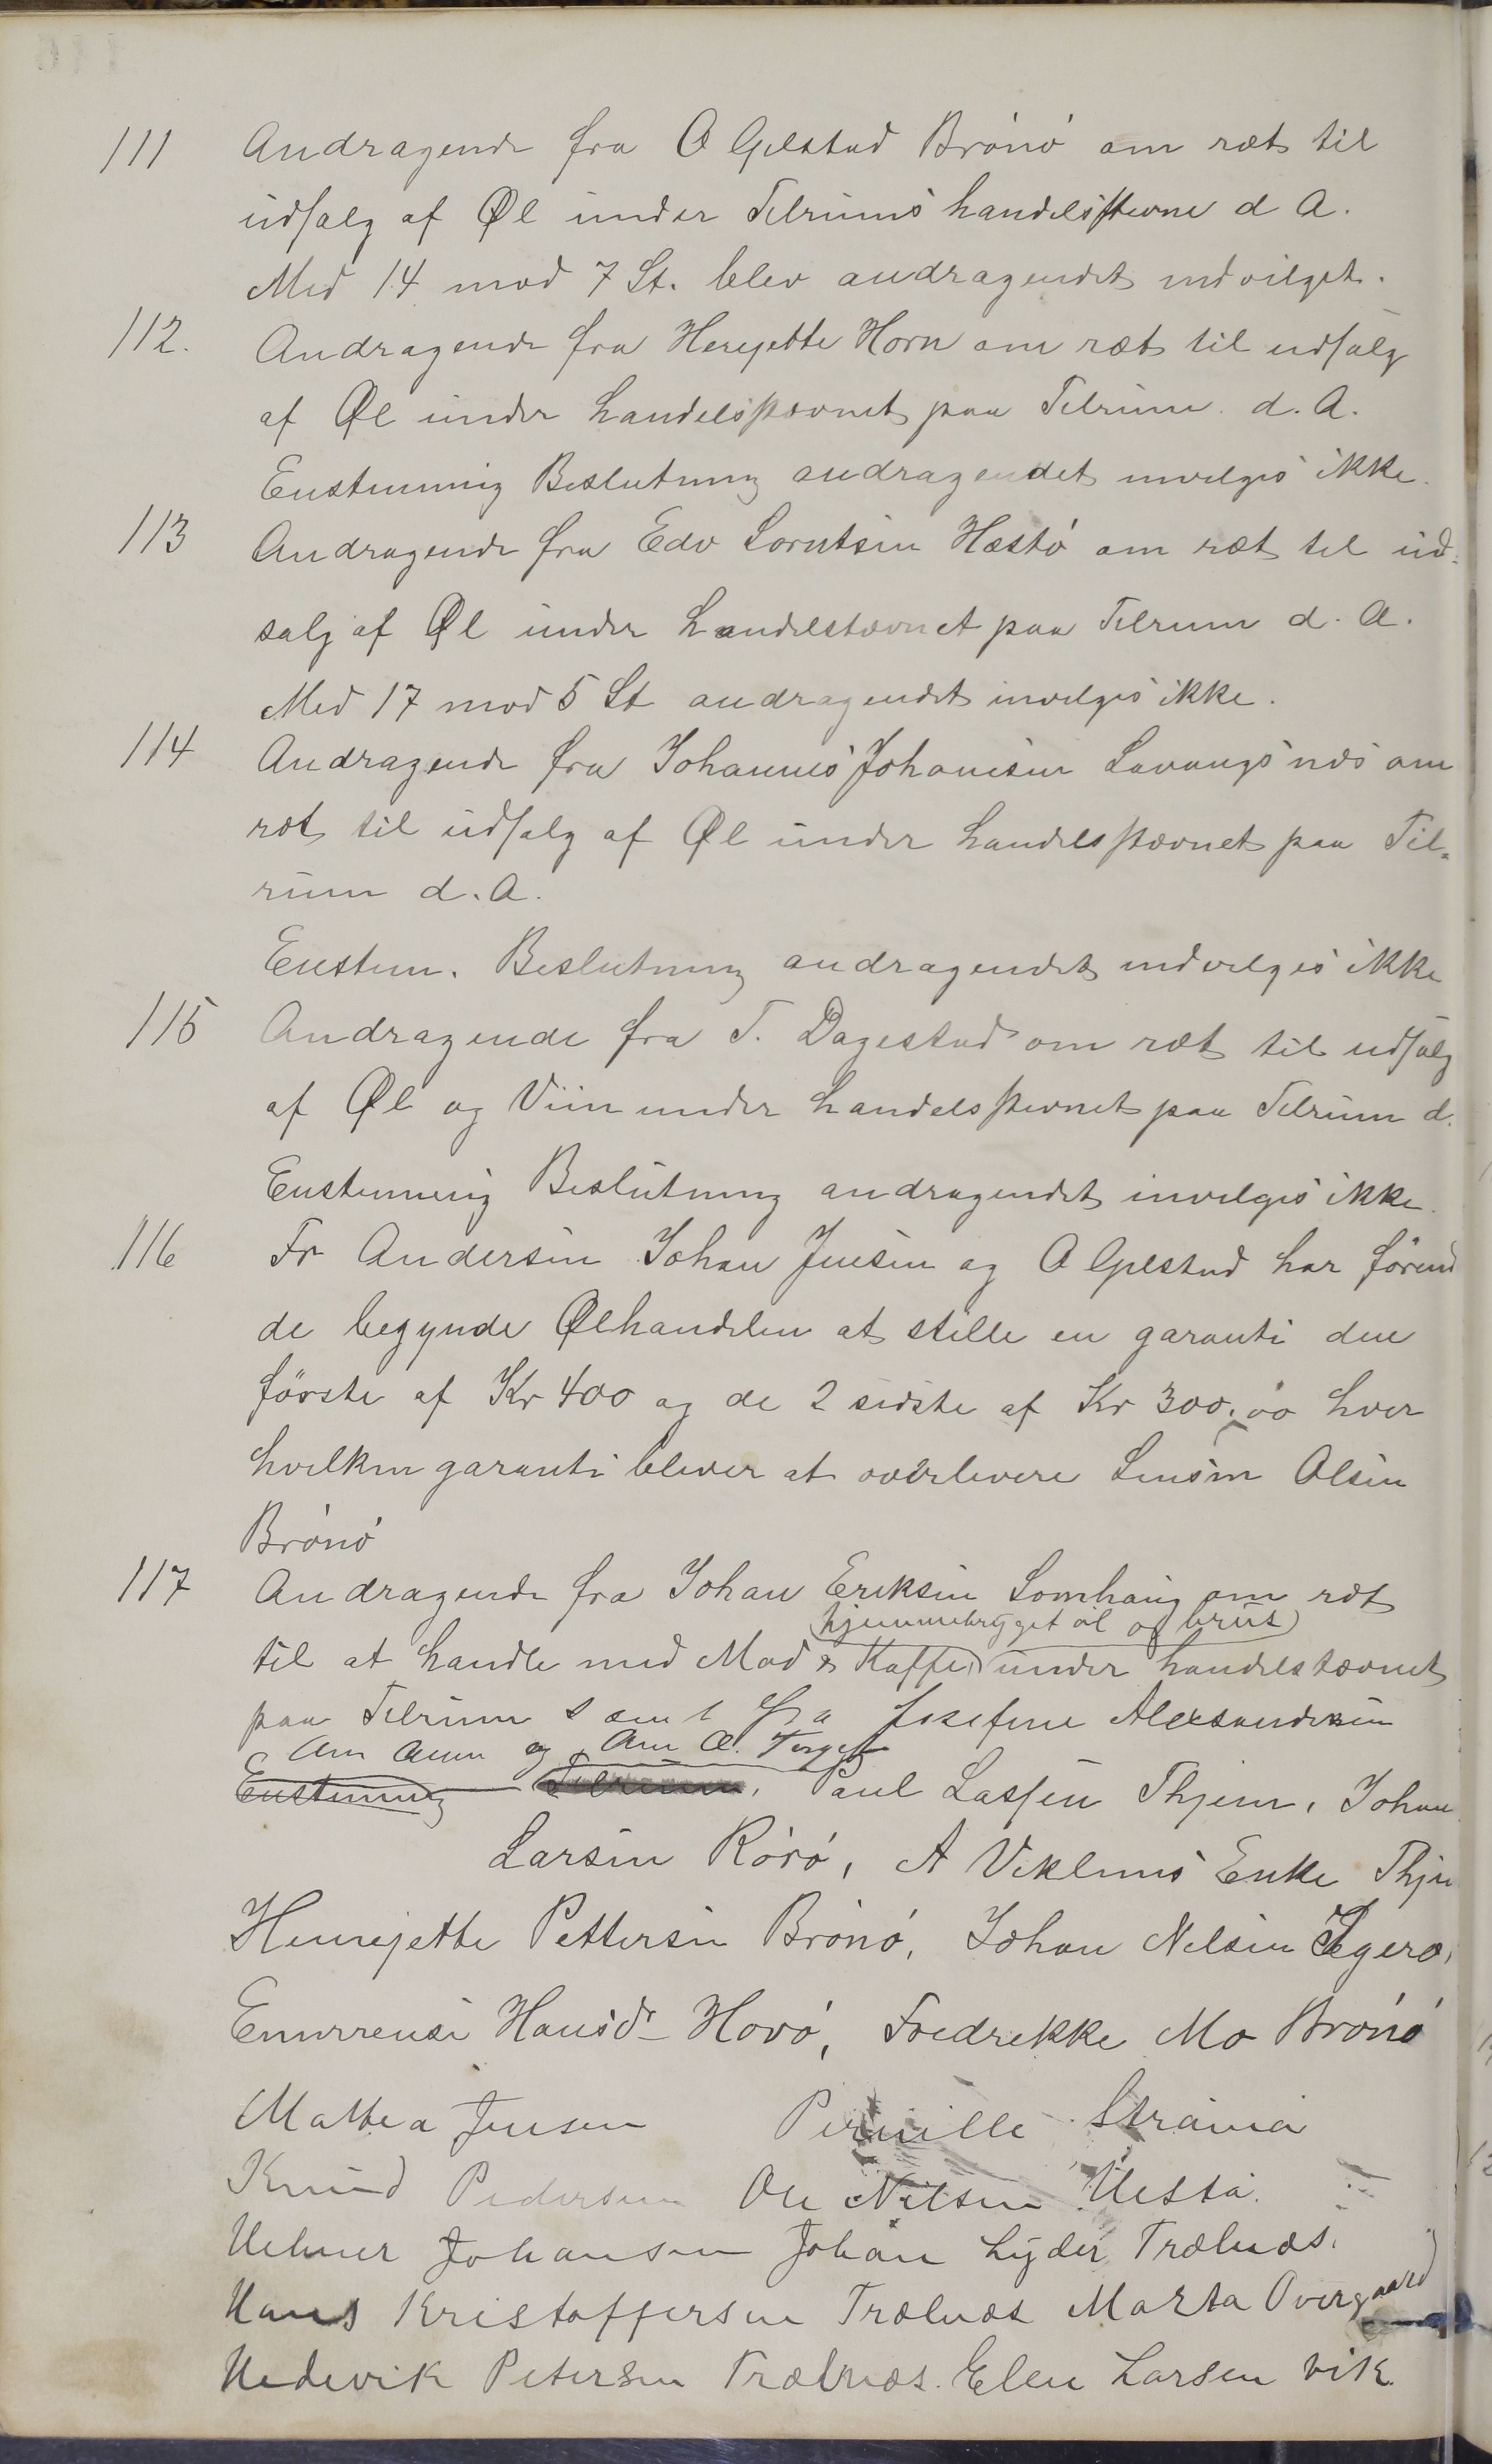 111 Andragende fra O Gjelstad Brönö om ræt til
udsalg af Øl under Tilrums handelsstevne d A.
Med 14 mod 7 St. blev andragendet indvilget.
112. Andragende fra Henrjette Horn om ræt til udsalg
af Øl under handelsstævnet paa Tilrum. d. A.
Enstemmig Beslutning andragendet invilges ikke.
113 Andragende fra Edv Lorntsen Hæstö om ræt til ud-
salg af Øl under handelstævnet paa Tilrum d. A.
Med 17 mod 5 St andragendet invilges ikke.
114 Andragende fra Johannes Johanesen Lavangsnæs om
ræt til udsalg af Øl under handelsstævnet paa Til-
rum d. A.
Enstem. Beslutning andragendet indvilges ikke
115 Andragende fra T. Dagestad om ræt til udsalg
af Øl og Viin under handelsstevnet paa Tilrum d.
Enstemmig Beslutning andragendet invilges ikke.
116 Fr Andersen Johan Jensen og O Gjelstad har förend
de begynde Ølhandelen at stille en garanti den
förste af Kr 400 og de 2 sidste af Kr 300,00 hver
hvilken garanti bliver at overlevere Lensm Olsen
Brönö
117 Andragende fra Johan Eriksen Somhaug om ræt
hjemmebrygget öl og brus
til at handle med Mad & Kaffe under handelstævnet
paa Tilrum samt fra Josefine Aleksandersen
Am Aunn og Ane O. Torget
Enstemmig Tilrum, Paul Lassen Thjem, Johan
Larsen Rörö, A Viklems Enke Thj
Henrejette Pettersen Brönö, Johan Nelsen Ygerö,
Emerrensi Hansdr Horö, Fredrekke Mo Brönö
Mathea Jensen Pernille Straumø
Knud Pedersen Ole Nilsen Hestø.
Helmer Johansen Johan Lyder Trælnæs.
Hans Kristoffersen Trælnæs Marta Overgaard
Hedevik Petersen Trælnæs. Elen Larsen Vik